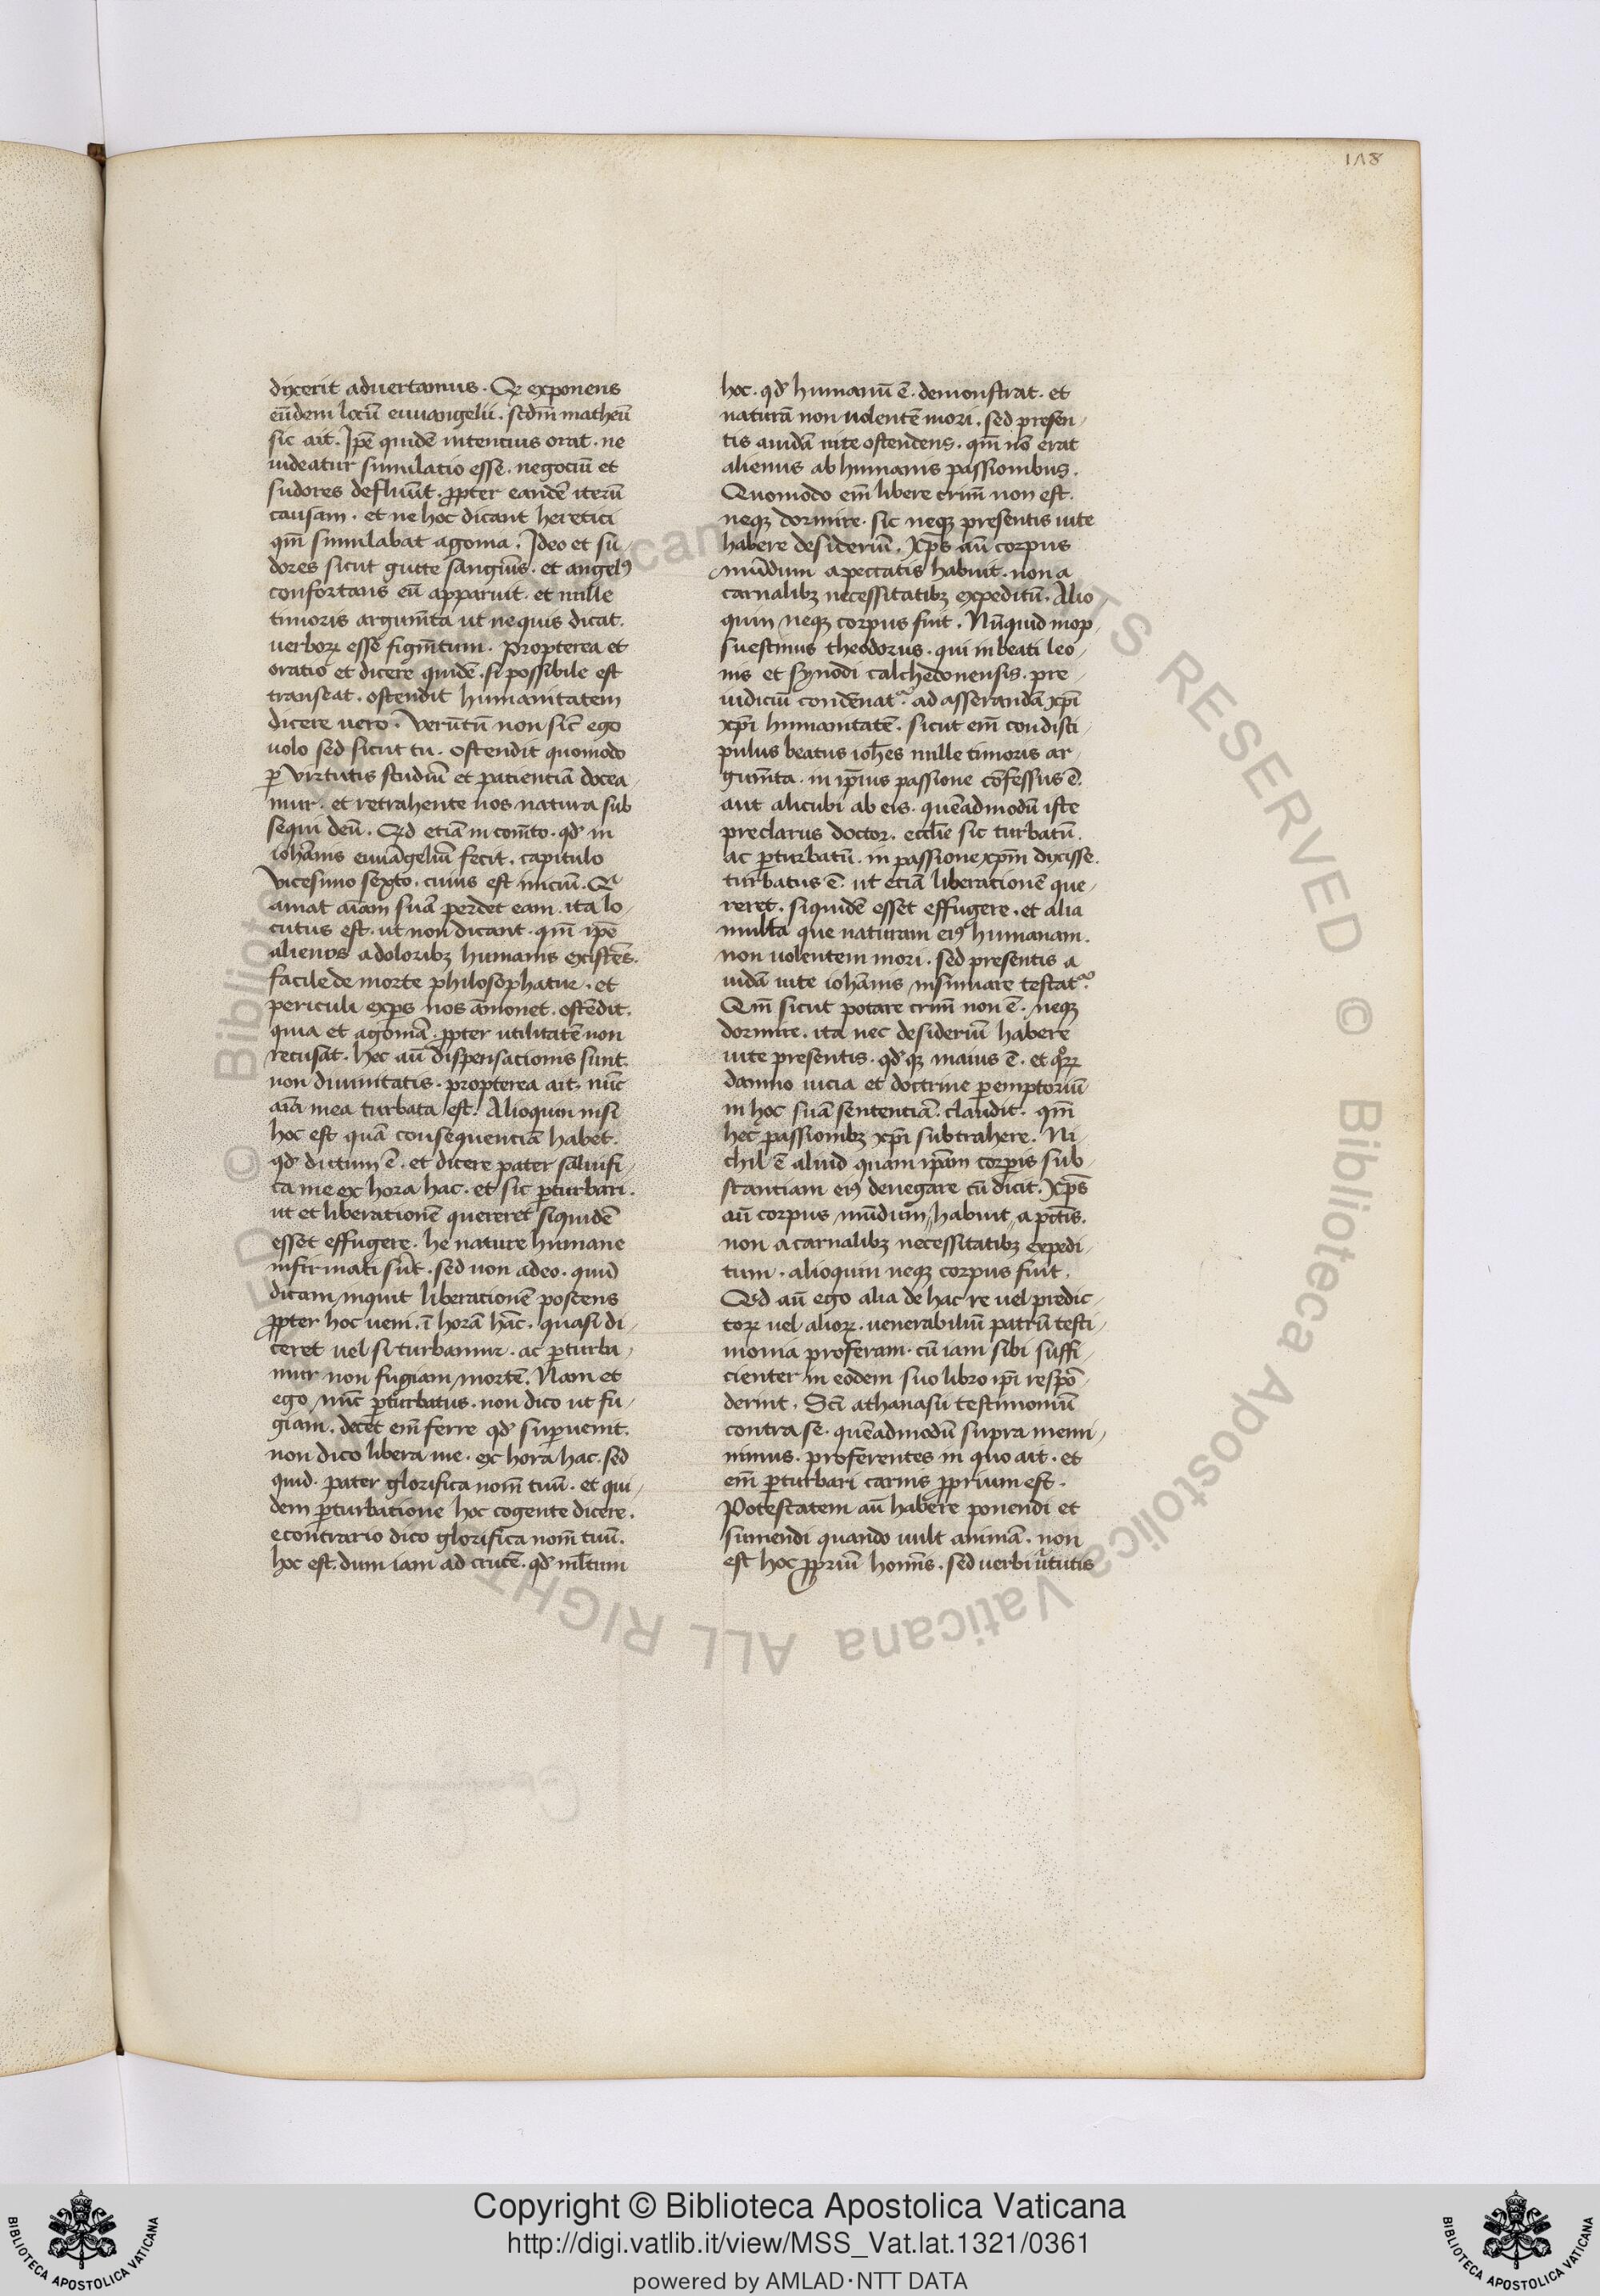 118
dixerit advertamus. Qz exponens
eūdem locū euuangelii. scdm̄ matheū
sic ait. Ipē quidē intencius orat. ne
uideatur simulatio esse. negociū et
sudores defluūt. ꝓpter eandē iterū
causam. et ne hoc dicant heretici
qm̄ simulabat agonia. Ideo et su-
dores sicut gutte sanguīs. et angelꝰ
confortans eū apparuit. et mille
timoris argum̄ta ut ne quis dicat.
uerboꝝ esse figm̄tum. Propterea et
oratio et dicere quidē. si possibile est
transeat. ostendit humanitatem
dicere uero. Verūtū non sic̄ ego
uolo sed sicut tu. ostendit quomodo
ꝑ virtutis studiū et patientiā docea-
mur. et retrahente nos natura sub
sequi deū. Qd etiā in com̄to. qd' in
ioh̄anis euuāgeliū fecit. capitulo
vicesimo sexto. cuius est iniciū. Qi
amat aīam suā perdet eam. ita lo-
cutus est. ut non dicant. qm̄ ipē
alienus a doloribꝫ humanis existēs.
facile de morte philosophatur. et
periculi exp̄s nos āmonet. ostēdit.
quia et agoniā. ꝓpter utilitatē non
recusāt. hec aū dispensacionis sunt.
non diuinitatis. propterea ait. nūc
aīa mea turbata est. Alioquin nisi
hoc est quā consequenciā habet.
qd' dictum ē. et dicere pater saluifi-
ca me ex hora hac. et sic ꝑturbari.
ut et liberationē quereret siquidē
esset effugere. he nature humane
infirmati sūt. sed non adeo. quid
dicam inquit liberationē poscens
ꝓpter hoc ueni. ī horā hāc. quasi di-
ceret uel si turbamur. ac ꝑturba-
mur non fugiam mortē. Nam et
ego nūc ꝑturbatus. non dico ut fu-
giam. decet em̄ ferre qd' suꝑuenit.
non dico libera me. ex hora hac. sed
quid. pater glorifica nom̄ tuū. et qui-
dem ꝑturbatione hoc cogente dicere.
econtrario dico glorifica nom̄ tuū.
hoc est. dum iam ad crucē. qd' ml̄tum
hoc. qd' humanū ē. demonstrat. et
naturā non uolentē mori. sed presen-
tis auidā uite ostendens. qm̄ nō erat
alienus ab humanis passionibus.
Quomodo em̄ libere crim̄ non est.
neqꝫ dormire. sic neqꝫ presentis uite
habere desideriū. Xp̄s aū corpus
mūdum a peccatis habuit. non a
carnalibꝫ necessitatibꝫ expeditū. Alio
quin neqꝫ corpus fuit. Nūquid mop-
suestinus theodorus. qui in beati leo-
nis et synodi calchedonensis. pre-
iudiciū condēnat᷑. ad asserandā xp̄i
xp̄i humanitatē. sicut em̄ condisci-
pulus beatus ioh̄es mille timoris ar-
gum̄ta. in ip̄ius passione cōfessus ē.
aut alicubi ab eis. quēadmodū iste
preclarus doctor. eccl̄ie sic turbatū.
ac ꝑturbatū. in passione xpm̄ dixisse.
turbatus ē. ut etiā liberationē que-
reret. siquidē esset effugere. et alia
multa que naturam eiꝰ humanam.
non uolentem mori. sed presentis a
uidā uite ioh̄anis insinuare testat᷑.
Qm̄ sicut potare crim̄ non ē. neqꝫ
dormire. ita nec desideriū habere
uite presentis. qd' qꝫ maius ē. et
damno iucia et doctrine ꝑemptoriū
in hoc suā sententiā. claudit. qm̄
hec passionibꝫ xp̄i subtrahere. Ni-
chil ē aliud quam ip̄am corꝑis sub-
stantiam eiꝰ denegare cū dicit. Xp̄s
aū corpus mūdum habuit a pctīs.
non a carnalibꝫ necessitatibꝫ expedi-
tum. alioquin neqꝫ corpus fuit.
Qd aū ego alia de hac re uel predic-
toꝝ uel alioꝝ. uenerabiliū patrū testi-
monia proferam. cū iam sibi suffi-
cienter in eodem suo libro ip̄i respō-
derint. Sc̄i athanasii testimoniū
contra se. quēadmodū supra memi-
nimus. proferentes in quo ait. et
em̄ ꝑturbari carnis ꝓprium est.
Potestatem aū habere ponendi et
sumendi quando uult animā. non
est hoc ꝓpriū homīs. sed uerbi uirtutis
© Biblioteca Apostolica Vaticana ALL RIGHTS RESERVED © Biblioteca Apostolica Vaticana ALL RIGHTS RESERVED
Copyright © Biblioteca Apostolica Vaticana
http://digi.vatlib.it/view/MSS_Vat.lat.1321/0361
powered by AMLAD·NTT DATA
BIBLIOTECA APOSTOLICA VATICANA
BIBLIOTECA APOSTOLICA VATICANA